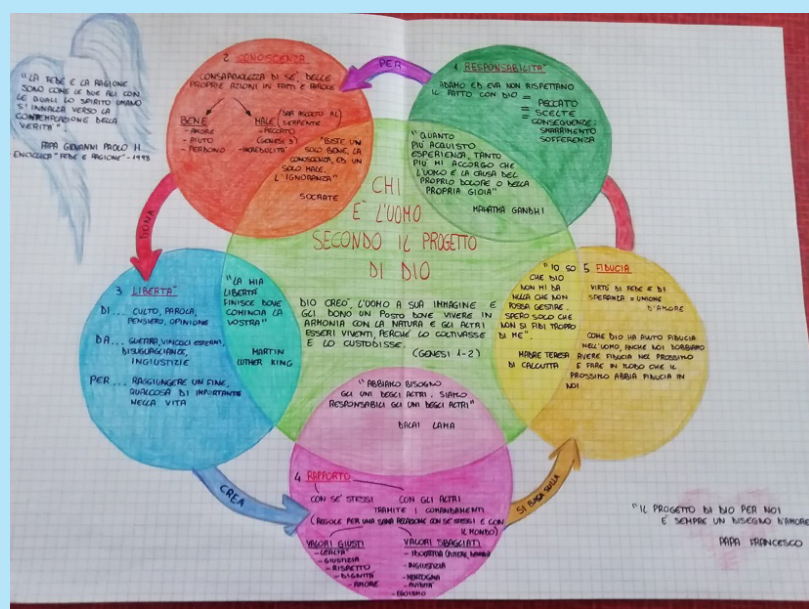 "LA FEDE E LA RAGIONE
SONO COME LE DUE ALI CON
LE QUALI LO SPIRITO UMANO
S'INNALZA VERSO LA
CONTEMPLAZIONE DELLA
VERITA'"
PAPA GIOVANNI PAOLO II
ENCICLICA "FEDE E RAGIONE" - 1998
2. CONOSCENZA
CONSAPEVOLEZZA DI SE', DELLE
PROPRIE AZIONI IN FATTI E PAROLE
BENE
- AMORE
- AIUTO
- PERDONO
MALE (DAR ASCOLTO AL
SERPENTE
- PECCATO
(GENESI 3)
- INCREDULITA'
"ESISTE UN
SOLO BENE, LA
CONOSCENZA, ED UN
SOLO MALE,
L'IGNORANZA"
SOCRATE
PER
1. RESPONSABILITA'
ADAMO ED EVA NON RISPETTANO
IL PATTO CON DIO
=
PECCATO
=
SCELTE
CONSEGUENZE:
SMARRIMENTO
SOFFERENZA
"QUANTO
PIU' ACQUISTO
ESPERIENZA, TANTO
PIU' MI ACCORGO CHE
L'UOMO E' LA CAUSA DEL
PROPRIO DOLORE O DELLA
PROPRIA GIOIA"
MAHATMA GANDHI
CHI
E' L'UOMO
SECONDO IL PROGETTO
DI DIO
DIO CREO' L'UOMO A SUA IMMAGINE E
GLI DONO UN POSTO DOVE VIVERE IN
ARMONIA CON LA NATURA E GLI ALTRI
ESSERI VIVENTI, PERCHE' LO COLTIVASSE
E LO CUSTODISSE.
(GENESI 1-2)
DONA
3. LIBERTA'
DI... CULTO, PAROLA,
PENSIERO, OPINIONE
DA... GUERRA, VINCOLI ESTERNI,
DISUGUAGLIANZE,
INGIUSTIZIE
PER... RAGGIUNGERE UN FINE,
QUALCOSA DI IMPORTANTE
NELLA VITA
"LA MIA
LIBERTA'
FINISCE DOVE
COMINCIA LA
VOSTRA"
MARTIN
LUTHER KING
5. FIDUCIA
VIRTU' DI FEDE E DI
SPERANZA = UNIONE
D'AMORE
COME DIO HA AVUTO FIDUCIA
NELL'UOMO, ANCHE NOI DOBBIAMO
AVERE FIDUCIA NEL PROSSIMO
E FARE IN MODO CHE IL
PROSSIMO ABBIA FIDUCIA IN
NOI
"IO SO
CHE DIO
NON MI DA
NULLA CHE NON
POSSA GESTIRE.
SPERO SOLO CHE
NON SI FIDI TROPPO
DI ME".
MADRE TERESA
DI CALCUTTA
"ABBIAMO BISOGNO
GLI UNI DEGLI ALTRI. SIAMO
RESPONSABILI GLI UNI DEGLI ALTRI"
DALAI LAMA
CREA
4. RAPPORTO
CON SE' STESSI CON GLI ALTRI
TRAMITE I COMANDAMENTI
(REGOLE PER UNA SANA RELAZIONE CON SE' STESSI E CON
IL MONDO)
VALORI GIUSTI
- LEALTA'
- GIUSTIZIA
- RISPETTO
- DIGNITA'
- AMORE
VALORI SBAGLIATI
- INGIUSTIZIA
- MENZOGNA
- AVIDITA'
- EGOISMO
SI BASA SULLA
"IL PROGETTO DI DIO PER NOI
E' SEMPRE UN DISEGNO D'AMORE"
PAPA FRANCESCO